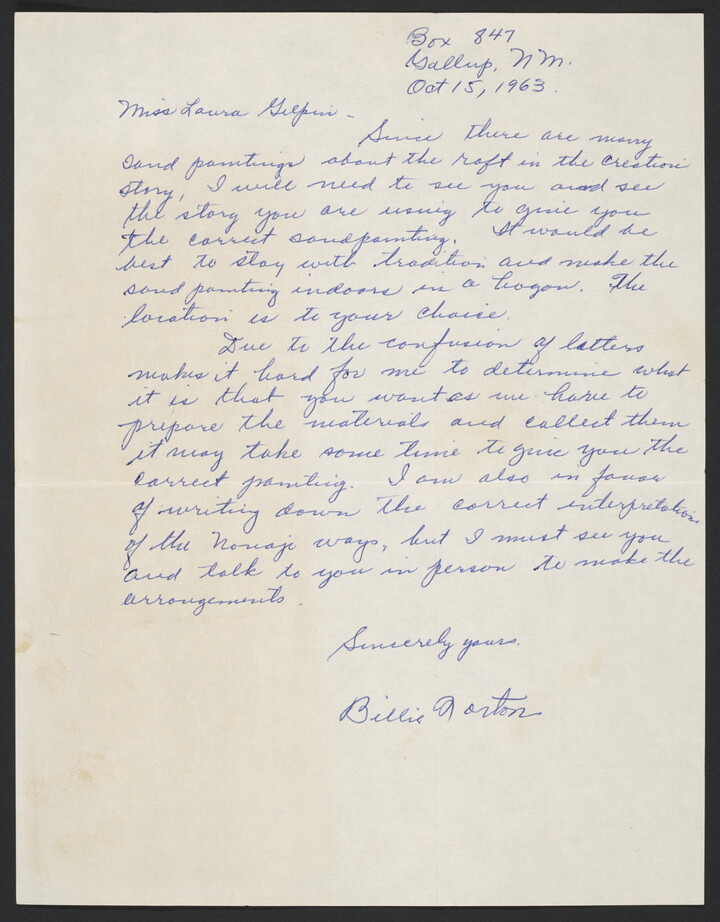 Box 847
Gallup, N.M.
Oct 15, 1963.
Miss Laura Gilpin -
Since there are many
sand paintings about the raft in the creation
story, I will need to see you and see
the story you are using to give you
the correct sandpainting. It would be
best to stay with tradition and make the
sand painting indoors in a hogan. The
location is to your choice.
Due to the confusion of letters
makes it hard for me to determine what
it is that you want as we have to
prepare the materials and collect them
it may take some time to give you the
correct painting. I am also in favor
of writing down the correct interpretation
of the Navajo ways, but I must see you
and talk to you in person to make the
arrangements.
Sincerely yours.
Billie Norton